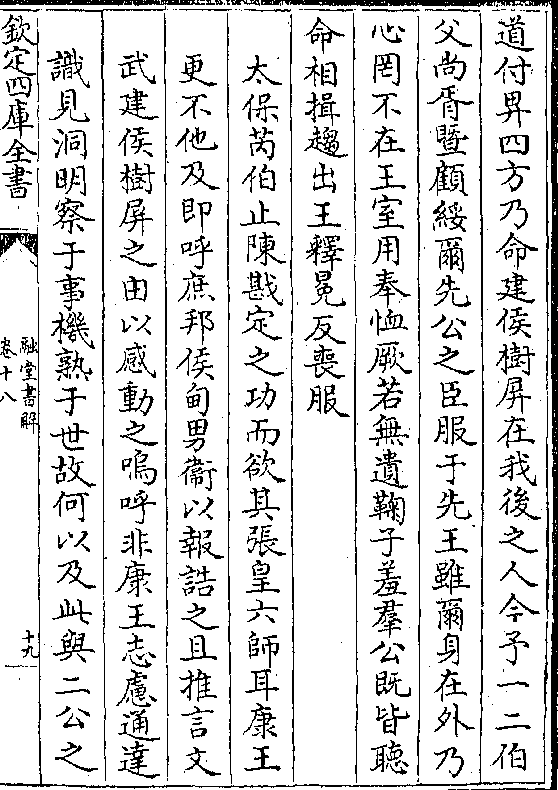 道付畀四方乃命建侯樹屏在我後之人今予一二伯
父尚胥暨顧綏爾先公之臣服于先王雖爾身在外乃
心罔不在王室用奉恤厥若無遺鞠子羞羣公既皆聽
命相揖趨出王釋冕反喪服
太保芮伯止陳戡定之功而欲其張皇六師耳康王
更不他及即呼庶邦侯甸男衞以報誥之且推言文
武建侯樹屏之由以感動之嗚呼非康王志慮通達
識見洞明察于事機熟于世故何以及此與二公之
欽定四庫全書
融堂書解
卷十八
十九